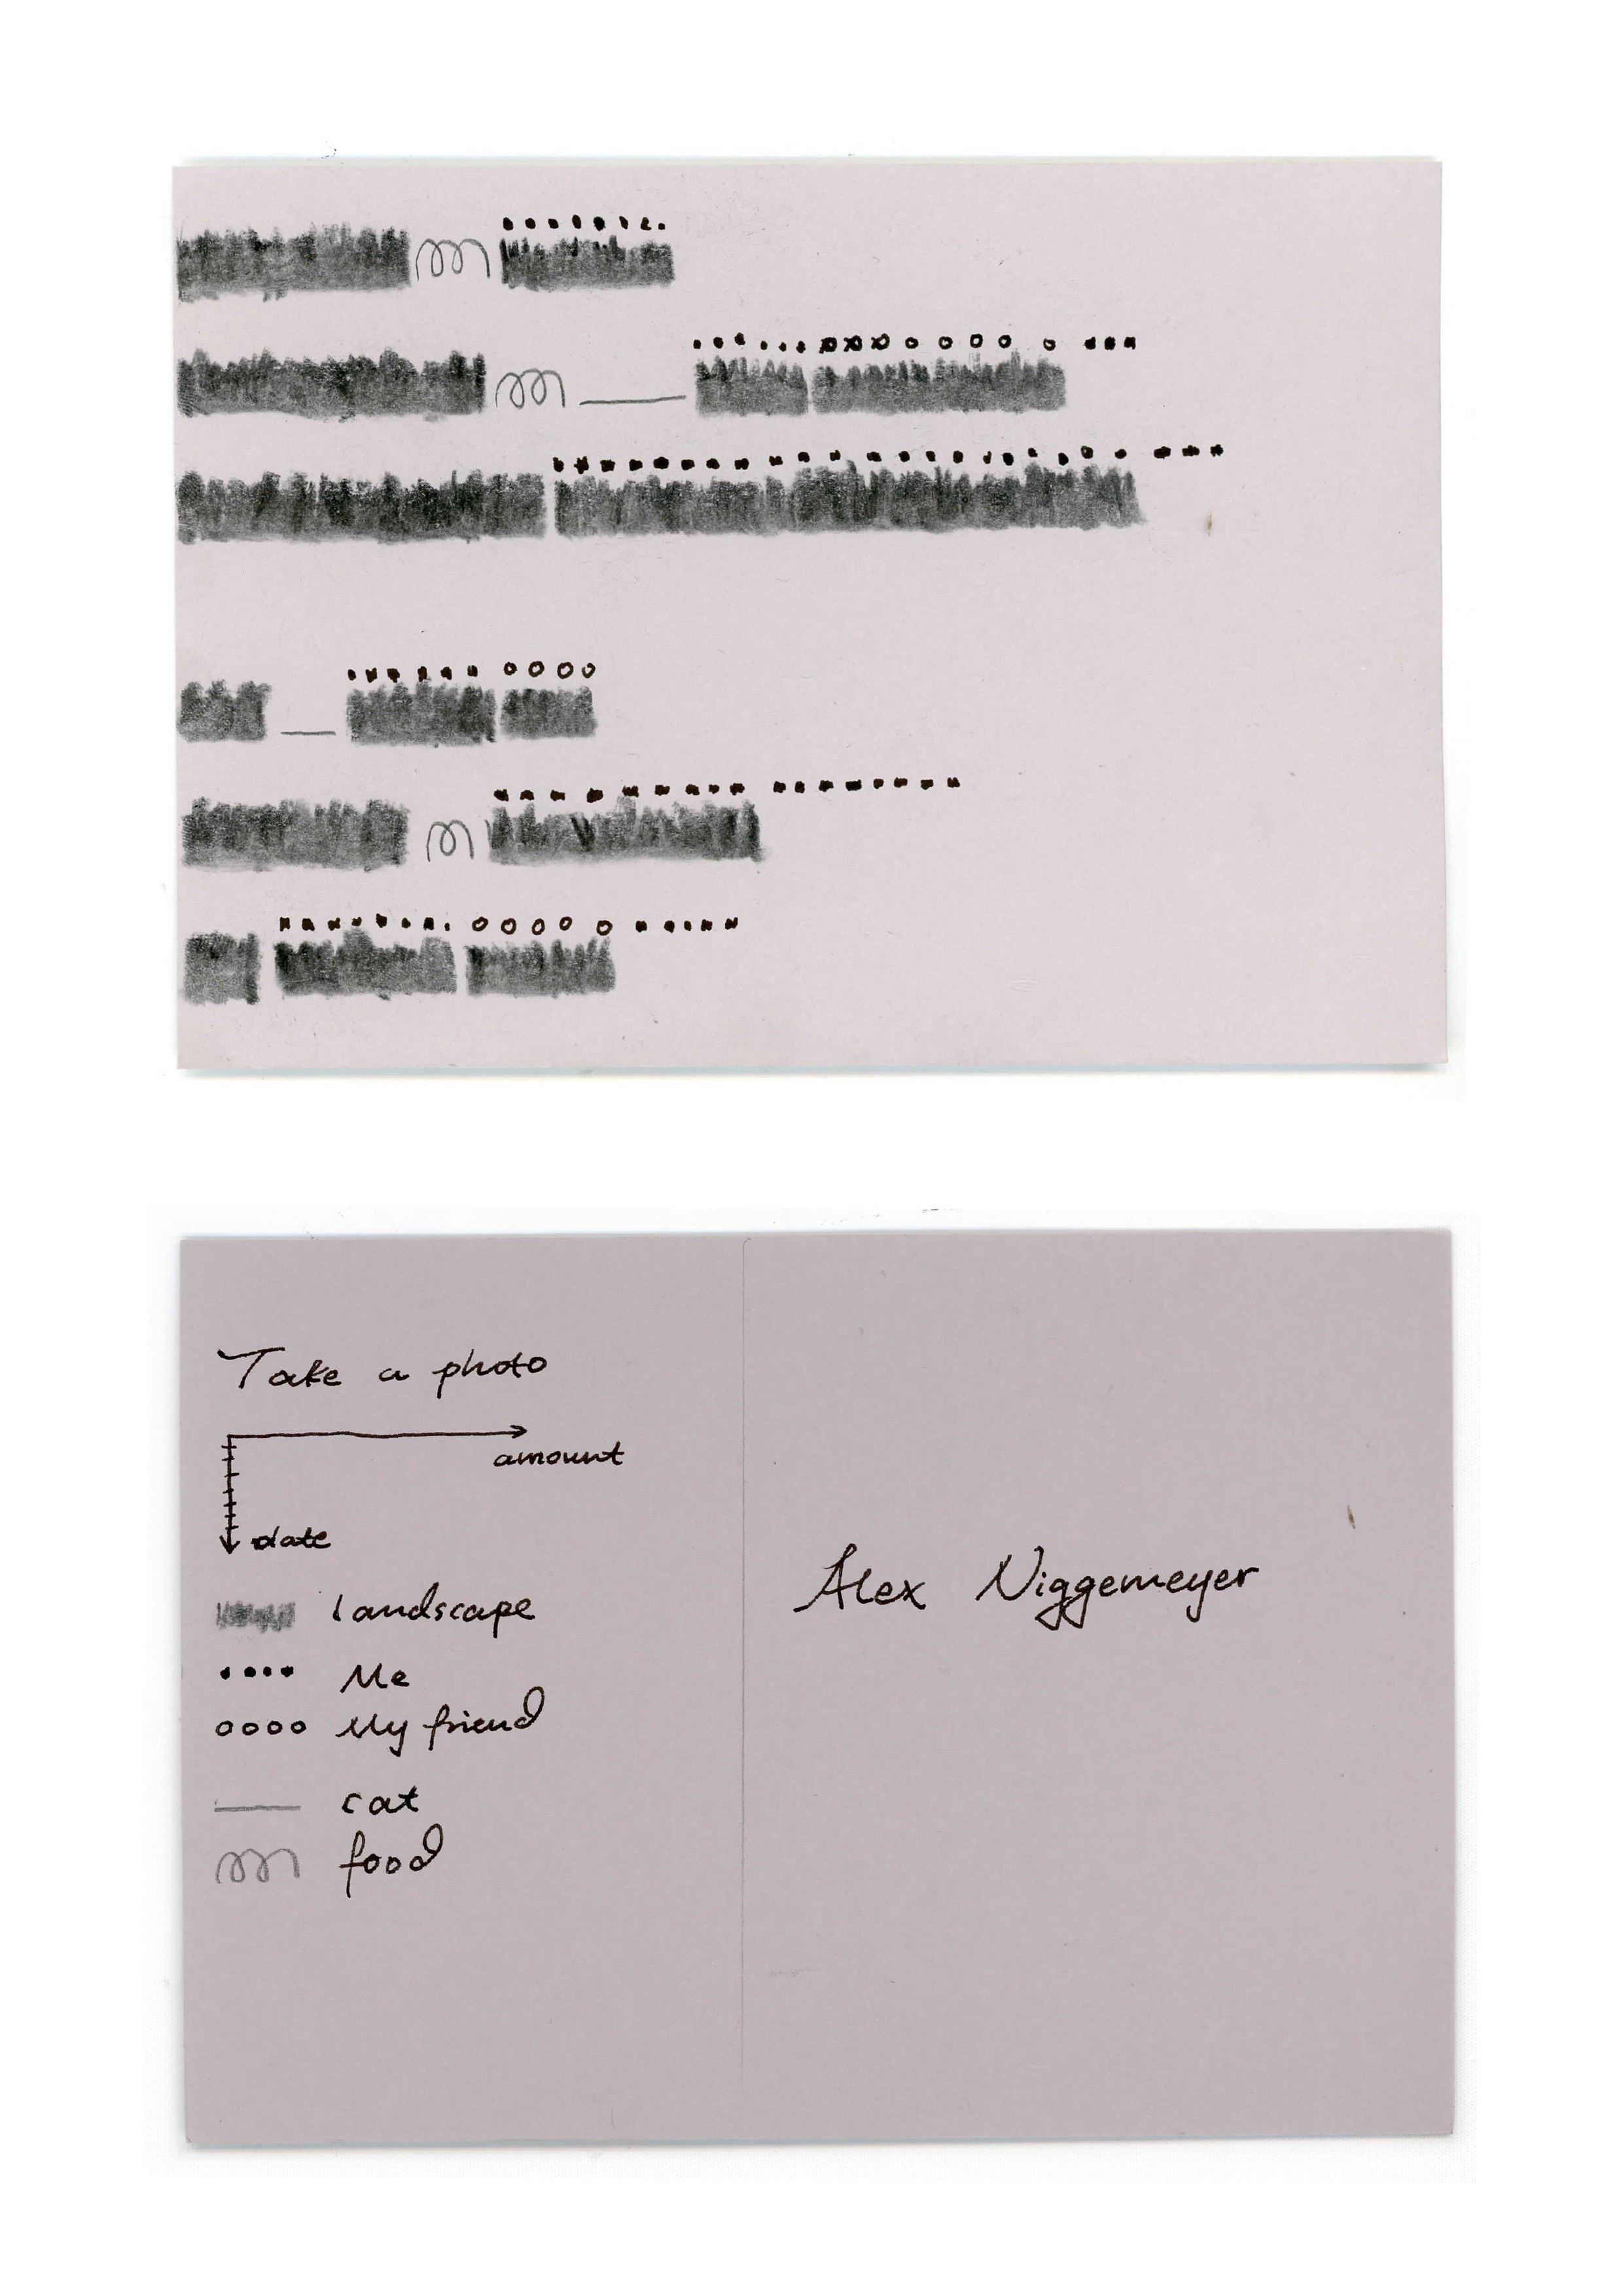 Take a photo
amount
date
landscape
Me
My friend
cat
food
Alex Niggemeyer